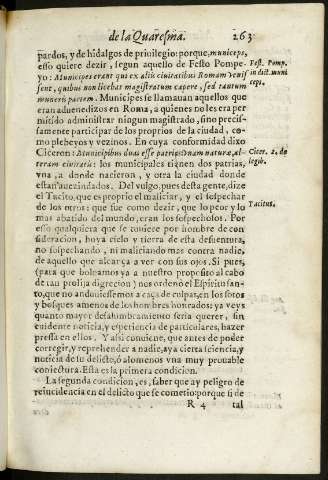 de la Quaresma. 263
pardos, y de hidalgos de priuilegio: porque, municeps,
esso quiere dezir, segun aquello de Festo Pompe-
yo: Municipes erant qui ex aliis ciuitatibus Romam venis
sent, quibus non licebat magistratum capere, sed tantum
muneris partem. Municipes se llamauan aquellos que
eran aduenedizos en Roma, a quienes no les era per-
mitido administrar ningun magistrado, sino precis-
samente participar de los proprios de la ciudad, co-
mo plebeyos y vezinos. En cuya conformidad dixo
Ciceron: Municipibus duas esse patrias, vnam naturæ, al-
teram ciuitatis: los municipales tienen dos patrias,
vna, a donde nacieron, y otra la ciudad donde
estan auezindados. Del vulgo, pues desta gente, dize
el Tacito, que es proprio el maliciar, y el sospechar
de los otros: que fue como dezir, que lo peor y lo
mas abatido del mundo, eran los sospechosos. Por
esso qualquiera que se tuuiere por hombre de con-
sideracion, huya cielo y tierra de esta desuentura,
no sospechando, ni maliciando mas contra nadie,
de aquello que alcança a ver con sus ojos. Si pues,
(para que boluamos ya a nuestro proposito al cabo
de tan prolija digression) nos ordenò el Espiritu san-
to, que no anduuiessemos a caça de culpas, en los sotos
y bosques amenos de los hombres honrados; ya veys
quanto mayor desalumbramiento seria querer, sin
euidente noticia, y esperiencia de particulares, hazer
pressa en ellos. Y assi conuiene, que antes de poder
corregir, y reprehender a nadie, aya cierta sciencia, y
noticia de su delicto, ò alomenos vna muy prouable
coniectura. Esta es la primera condicion.
La segunda condicion, es, saber que ay peligro de
reincidencia en el delicto que se cometio: porque si de
R 4 tal
Fest. Pomp.
in dict. muni
ceps.
Cicer. 2. de
legib.
Tacitus.